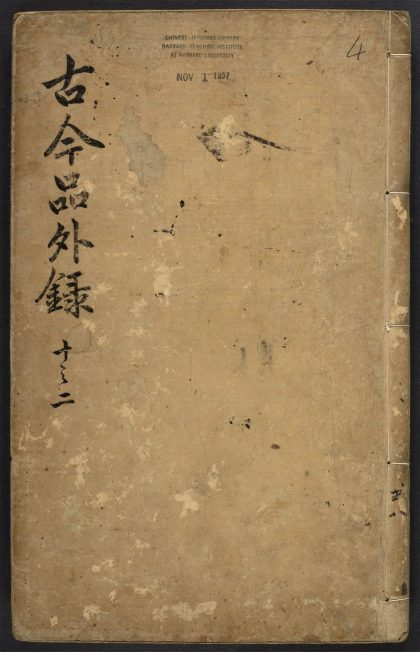 古今品外錄
十之二
CHINESE-JAPANESE LIBRARY
HARVARD-YENCHING INSTITUTE
AT HARVARD UNIVERSITY
NOV 1 1957
4